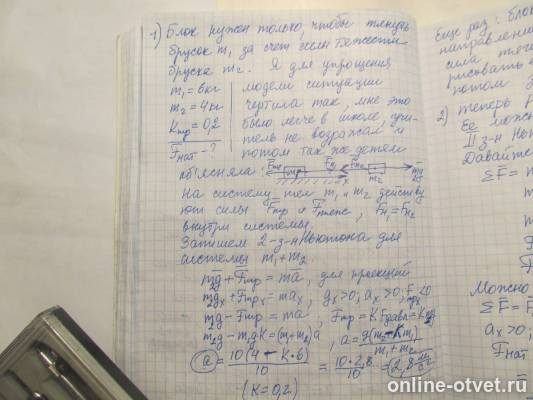 1) Блок нужен только, чтобы тянуть
брусок m₁ за счет силы тяжести
бруска m₂. Я для упрощения
m₁ = 6кг модели ситуации
m₂ = 4кг чертила так, мне это
Kтр = 0,2 было легче в школе, учи-
Fнат - ? тель не возражал и
потом так же детям
объясняла:
Fтр m₁ Fн₁ Fн₂ m₂ m₂g
x
На систему тел m₁ и m₂ действу
ют силы Fтр и Fтяж, Fн₁ = Fн₂
внутри системы.
Запишем 2-з-н Ньютона для
системы m₁ + m₂.
m₂g + Fтр = ma, для проекций
m₂gx + Fтрx = max, gx > 0; ax > 0; Fтрx < 0
m₂g - Fтр = ma, Fтр = K Fдавл = K
m₂g - m₁gK = (m₁ + m₂)a, a = g(m₂ - Km₁) / m₁ + m₂
a = 10(4 - K·6) / 10 = 10·2,8 / 10 = 2,8 м/с²
(K = 0,2)
Еще раз: блок
направлени
сила тяж
рисовать
потом
2) теперь
Ее можно
II з-н Нью
Давайте
ΣF = m
Можно
ΣF =
ax > 0;
Fнат
online-otvet.ru